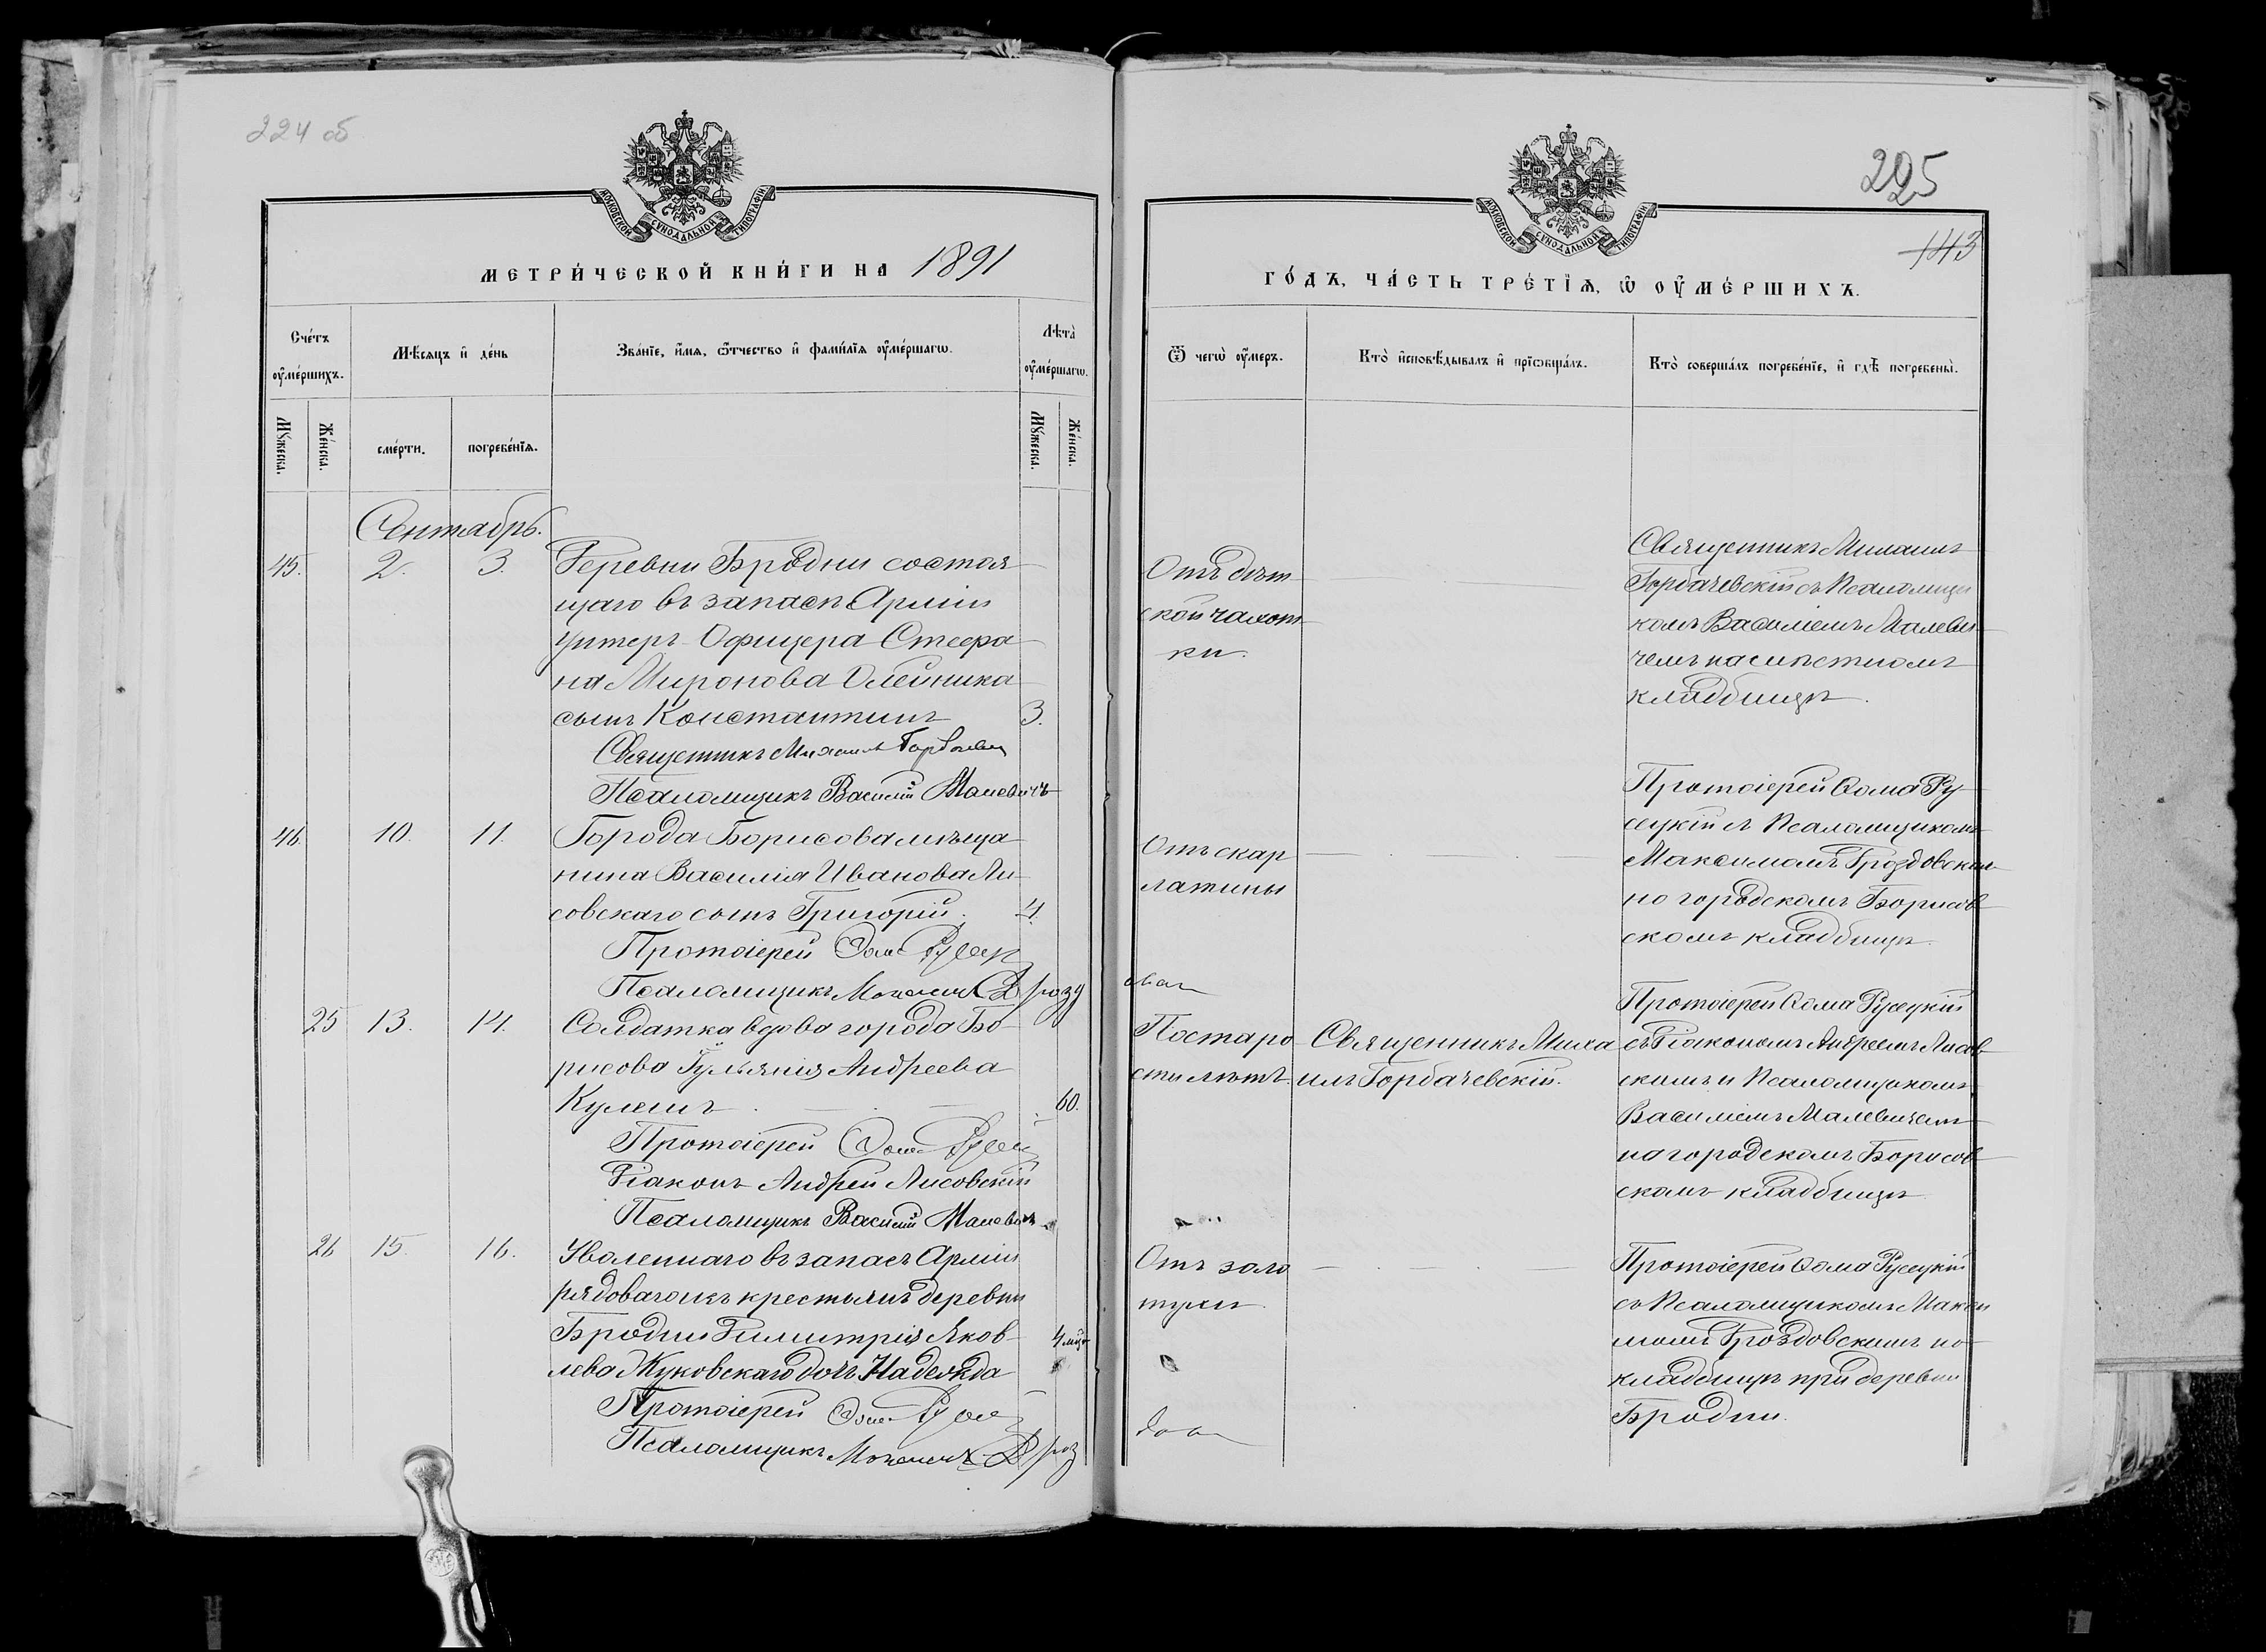 224 об
МОСКОВСКОЙ СѴНОДАЛЬНОЙ ТИПОГРАФІИ
МЕТРИ́ЧЕСКОЙ КНИ́ГИ НА 1891
Сче́тъ ᲂу҆ме́ршихъ.
Мѣ́сяцъ и҆ де́нь
Зва́нїе, и҆́мя, ѻ҆́тчество и҆ фами́лїя ᲂу҆ме́ршагѡ.
Лѣта̀ ᲂу҆ме́ршагѡ.
Мꙋ́жеска.
Же́нска.
сме́рти.
погребе́нїѧ.
Мꙋ́жеска.
Же́нска.
Сентябрь.
45. 2. 3. Деревни Бродни состоя
щаго въ запасѣ Арміи
Унтеръ-Офицера Стефа
на Миронова Олейника
сынъ Константинъ 3.
Священникъ Михаилъ Горбачев
Псаломщикъ Василій Малевичъ
46. 10. 11. Города Борисова мѣща
нина Василія Иванова Ли
совскаго сынъ Григорій. 4.
Протоіерей Фома Русец
Псаломщикъ Максимъ Дрозд
25 13. 14. Солдатка вдова города Бо
рисова Гульянія Андреева
Кулешъ 60.
Протоіерей Фома Русец
Діаконъ Андрей Лисовскій
Псаломщикъ Василій Малевичъ
26 15. 16. Уволеннаго въ запасъ Арміи
рядоваго изъ крестьянъ деревни
Бродни Димитрія Яков
лева Жуковскаго дочь Надежда 4 мѣс
Протоіерей Фома Русец
Псаломщикъ Максимъ Дрозд
225
143
МОСКОВСКОЙ СѴНОДАЛЬНОЙ ТИПОГРАФІИ
ГО́ДЪ, ЧА́СТЬ ТРЕ́ТЇѦ, Ѡ ОУ҆МЕ́РШИХЪ.
Ѿ чегѡ̀ ᲂу҆́меръ.
Кто̀ и҆сповѣ́дывалъ и҆ прїѡбща́лъ.
Кто̀ соверша́лъ погребе́нїе, и҆ гдѣ̀ погребены̀.
Отъ дѣт
ской чахот
ки.
Священникъ Михаилъ
Горбачевскій съ Псаломщи
комъ Василіемъ Малеви
чемъ на мѣстномъ
кладбищѣ.
Отъ скар
латины
Протоіерей Фома Ру
сецкій съ Псаломщикомъ
Максимомъ Дроздовским
на городскомъ Борисов
скомъ кладбищѣ.
По старо
сти лѣтъ
Священникъ Миха
илъ Горбачевскій.
Протоіерей Фома Русецкій
съ Діакономъ Андреемъ Лисов
скимъ и Псаломщикомъ
Василіемъ Малевичемъ
на городскомъ Борисов
скомъ кладбищѣ
Отъ золо
тухи
Протоіерей Фома Русецкій
съ Псаломщикомъ Макси
момъ Дроздовскимъ на
кладбищѣ при деревни
Бродни.